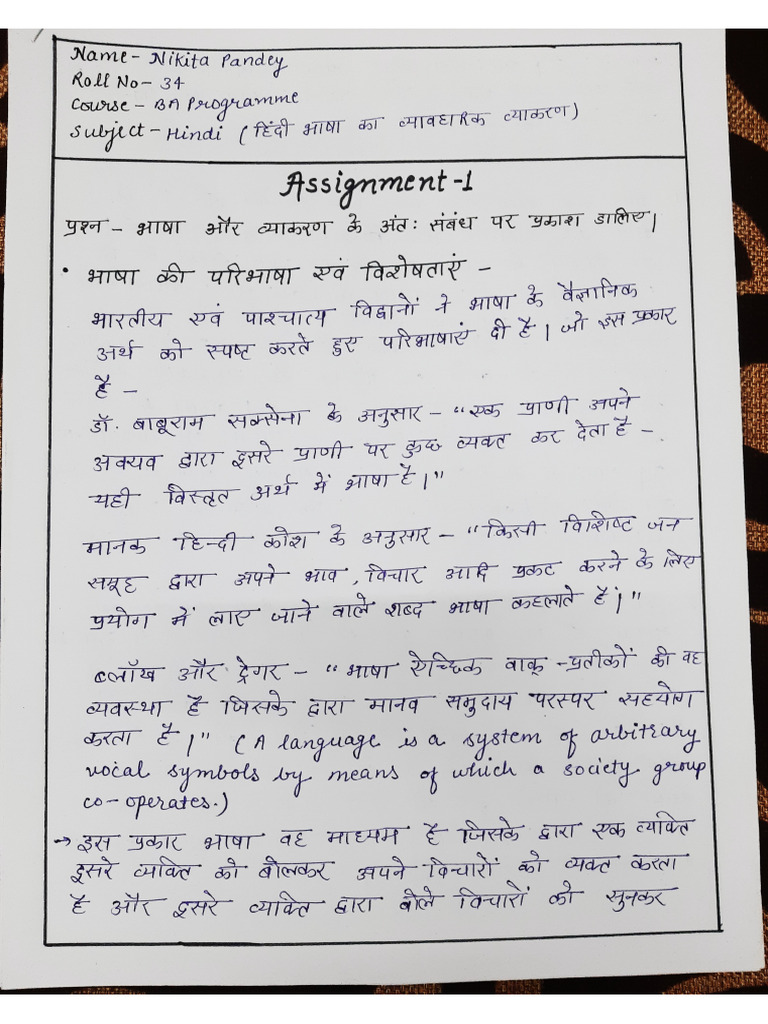 Name- Nikita Pandey
Roll No- 34
Course - BA Programme
Subject - Hindi (हिंदी भाषा का व्यावहारिक व्याकरण)
Assignment-1
प्रश्न - भाषा और व्याकरण के अंतः संबंध पर प्रकाश डालिए।
• भाषा की परिभाषा एवं विशेषताएं -
भारतीय एवं पाश्चात्य विद्वानों ने भाषा के वैज्ञानिक
अर्थ को स्पष्ट करते हुए परिभाषाएं दी है। जो इस प्रकार
है -
डॉ. बाबूराम सक्सेना के अनुसार - "एक प्राणी अपने
अवयव द्वारा दूसरे प्राणी पर कुछ व्यक्त कर देता है -
यही विस्तृत अर्थ में भाषा है।"
मानक हिन्दी कोश के अनुसार - "किसी विशिष्ट जन
समूह द्वारा अपने भाव, विचार आदि प्रकट करने के लिए
प्रयोग में लाए जाने वाले शब्द भाषा कहलाते हैं।"
ब्लॉख और ट्रेगर - "भाषा ऐच्छिक वाक् -प्रतीकों की वह
व्यवस्था है जिसके द्वारा मानव समुदाय परस्पर सहयोग
करता है।" (A language is a system of arbitrary
vocal symbols by means of which a society group
co-operates.)
→ इस प्रकार भाषा वह माध्यम है जिसके द्वारा एक व्यक्ति
दूसरे व्यक्ति को बोलकर अपने विचारों को व्यक्त करता
है और दूसरे व्यक्ति द्वारा बोले विचारों को सुनकर